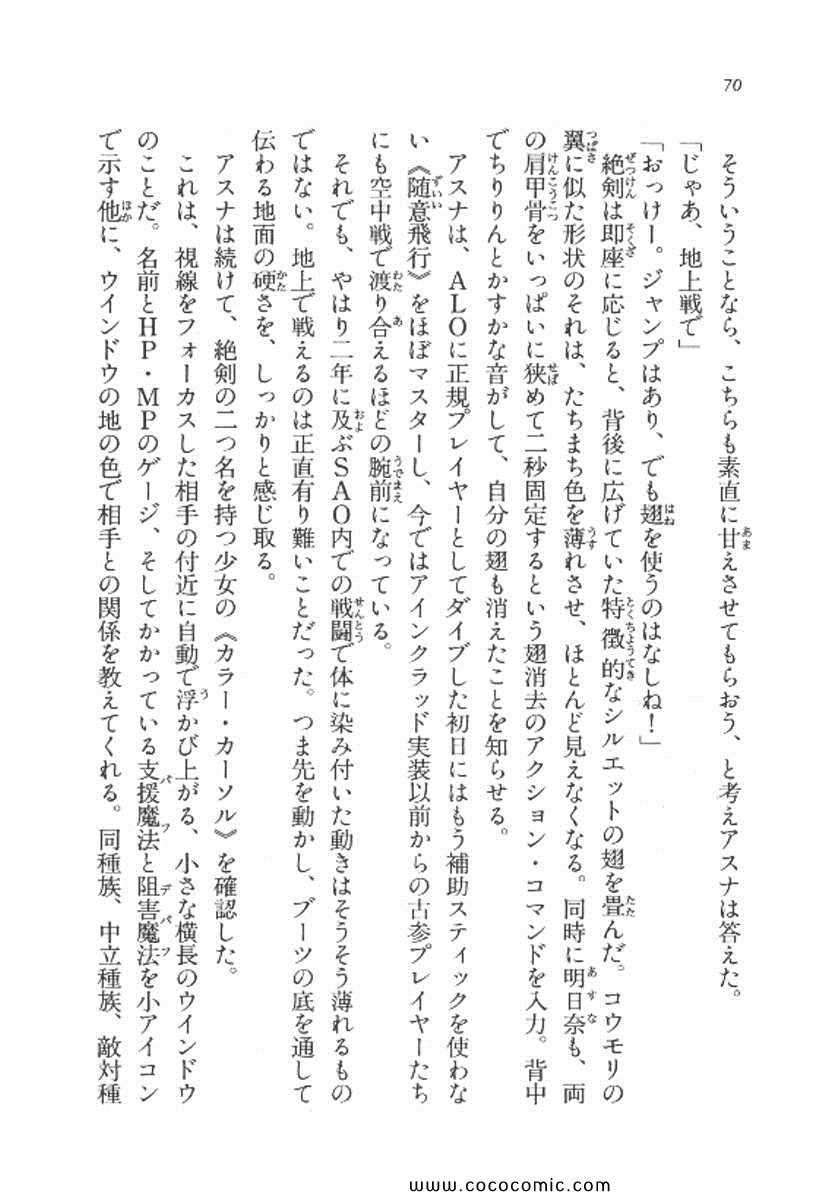 70
そういうことなら、こちらも素直に甘えさせてもらおう、と考えアスナは答えた。
「じゃあ、地上戦で」
「おっけー。ジャンプはあり、でも翅を使うのはなしね！」
絶剣は即座に応じると、背後に広げていた特徴的なシルエットの翅を畳んだ。コウモリの
翼に似た形状のそれは、たちまち色を薄れさせ、ほとんど見えなくなる。同時に明日奈も、両
の肩甲骨をいっぱいに狭めて二秒固定するという翅消去のアクション・コマンドを入力。背中
でちりりんとかすかな音がして、自分の翅も消えたことを知らせる。
アスナは、ＡＬＯに正規プレイヤーとしてダイブした初日にはもう補助スティックを使わな
い《随意飛行》をほぼマスターし、今ではアインクラッド実装以前からの古参プレイヤーたち
にも空中戦で渡り合えるほどの腕前になっている。
それでも、やはり二年に及ぶＳＡＯ内での戦闘で体に染み付いた動きはそうそう薄れるもの
ではない。地上で戦えるのは正直有り難いことだった。つま先を動かし、ブーツの底を通して
伝わる地面の硬さを、しっかりと感じ取る。
アスナは続けて、絶剣の二つ名を持つ少女の《カラー・カーソル》を確認した。
これは、視線をフォーカスした相手の付近に自動で浮かび上がる、小さな横長のウインドウ
のことだ。名前とＨＰ・ＭＰのゲージ、そしてかかっている支援魔法と阻害魔法を小アイコン
で示す他に、ウインドウの地の色で相手との関係を教えてくれる。同種族、中立種族、敵対種
www.cococomic.com